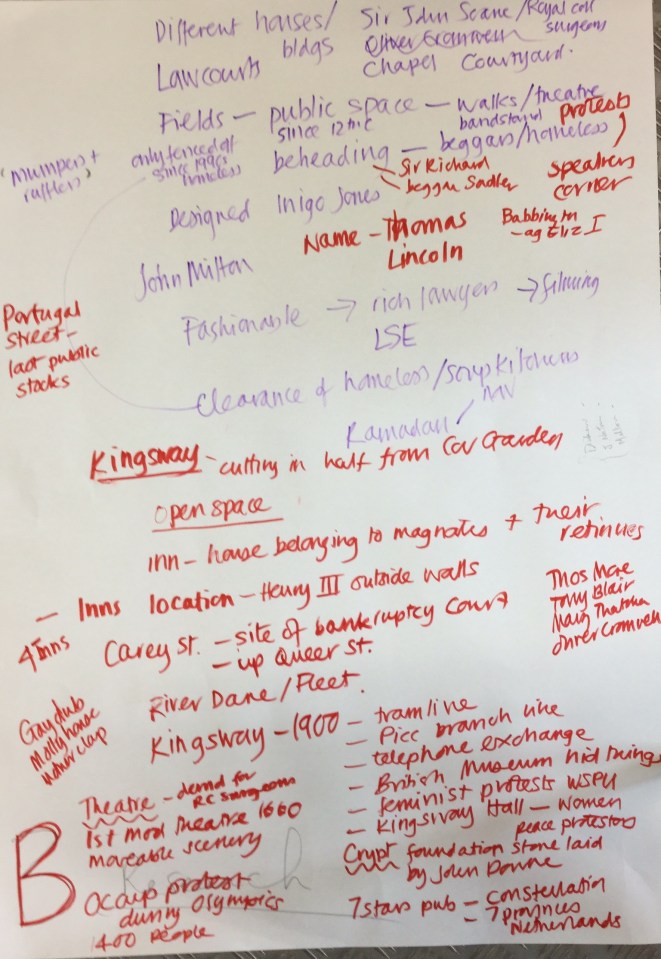 Different houses/ bldgs
Sir John Soane/Royal coll surgeons
Lawcourts
Oliver Cromwell
Chapel Courtyard.
Fields - public space - walks/theatre
since 12th C
bandstand
protests
"mumpers + rufflers"
only fenced off since 1990s homeless
beheading - beggars/homeless
Sir Richard
beggar Sadler
speakers corner
Designed Inigo Jones
Name - Thomas Lincoln
Babbington - ag Eliz I
John Milton
Portugal Street - last public stocks
Fashionable → rich lawyers → filming
LSE
Clearance of homeless/soup kitchens
Ramadan
Kingsway - cutting in half from Cov Garden
open space
inn - house belonging to magnates + their retinues
- Inns location - Henry III outside walls
4 Inns
Carey St. - site of bankruptcy court
- up Queer St.
Thos More
Tony Blair
Marg Thatcher
Oliver Cromwell
River Dane/Fleet.
Gay club
Molly house
Mother clap
Kingsway - 1900 - tramline
- Picc branch line
- telephone exchange
- British Museum hid things
- feminist protests WSPU
- Kingsway Hall - women peace protestors
Theatre - demd for RC surgeons
1st mod theatre 1660
moveable scenery
Crypt foundation stone laid by John Donne
B
Occup protest
during Olympics
400 people
7 stars pub - constellation
- 7 provinces Netherlands